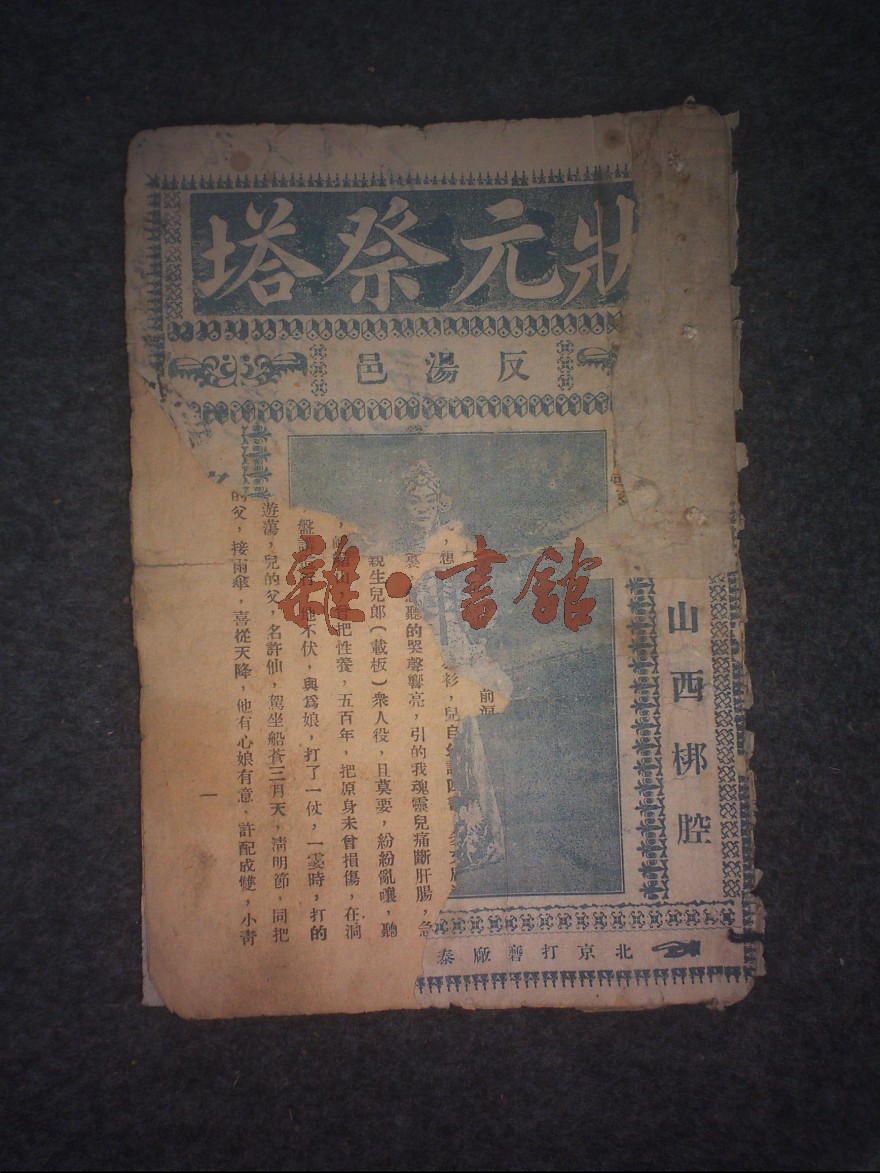 狀元祭塔
反湯邑
山西梆腔
北京打磨廠泰
雜·書館
前
想
衫，兒自幼
聽的哭聲響亮，引的我魂靈兒痛斷肝腸，急
親生兒郎（載板）衆人役，且莫要，紛紛亂嚷，聽
把性養，五百年，把原身未曾損傷，在洞
盤
不伏，與爲娘，打了一仗，一霎時，打的
遊蕩，兒的父，名許仙，駕坐船苍三月天，清明節，同把
的父，接雨傘，喜從天降，他有心娘有意，許配成雙，小青
一